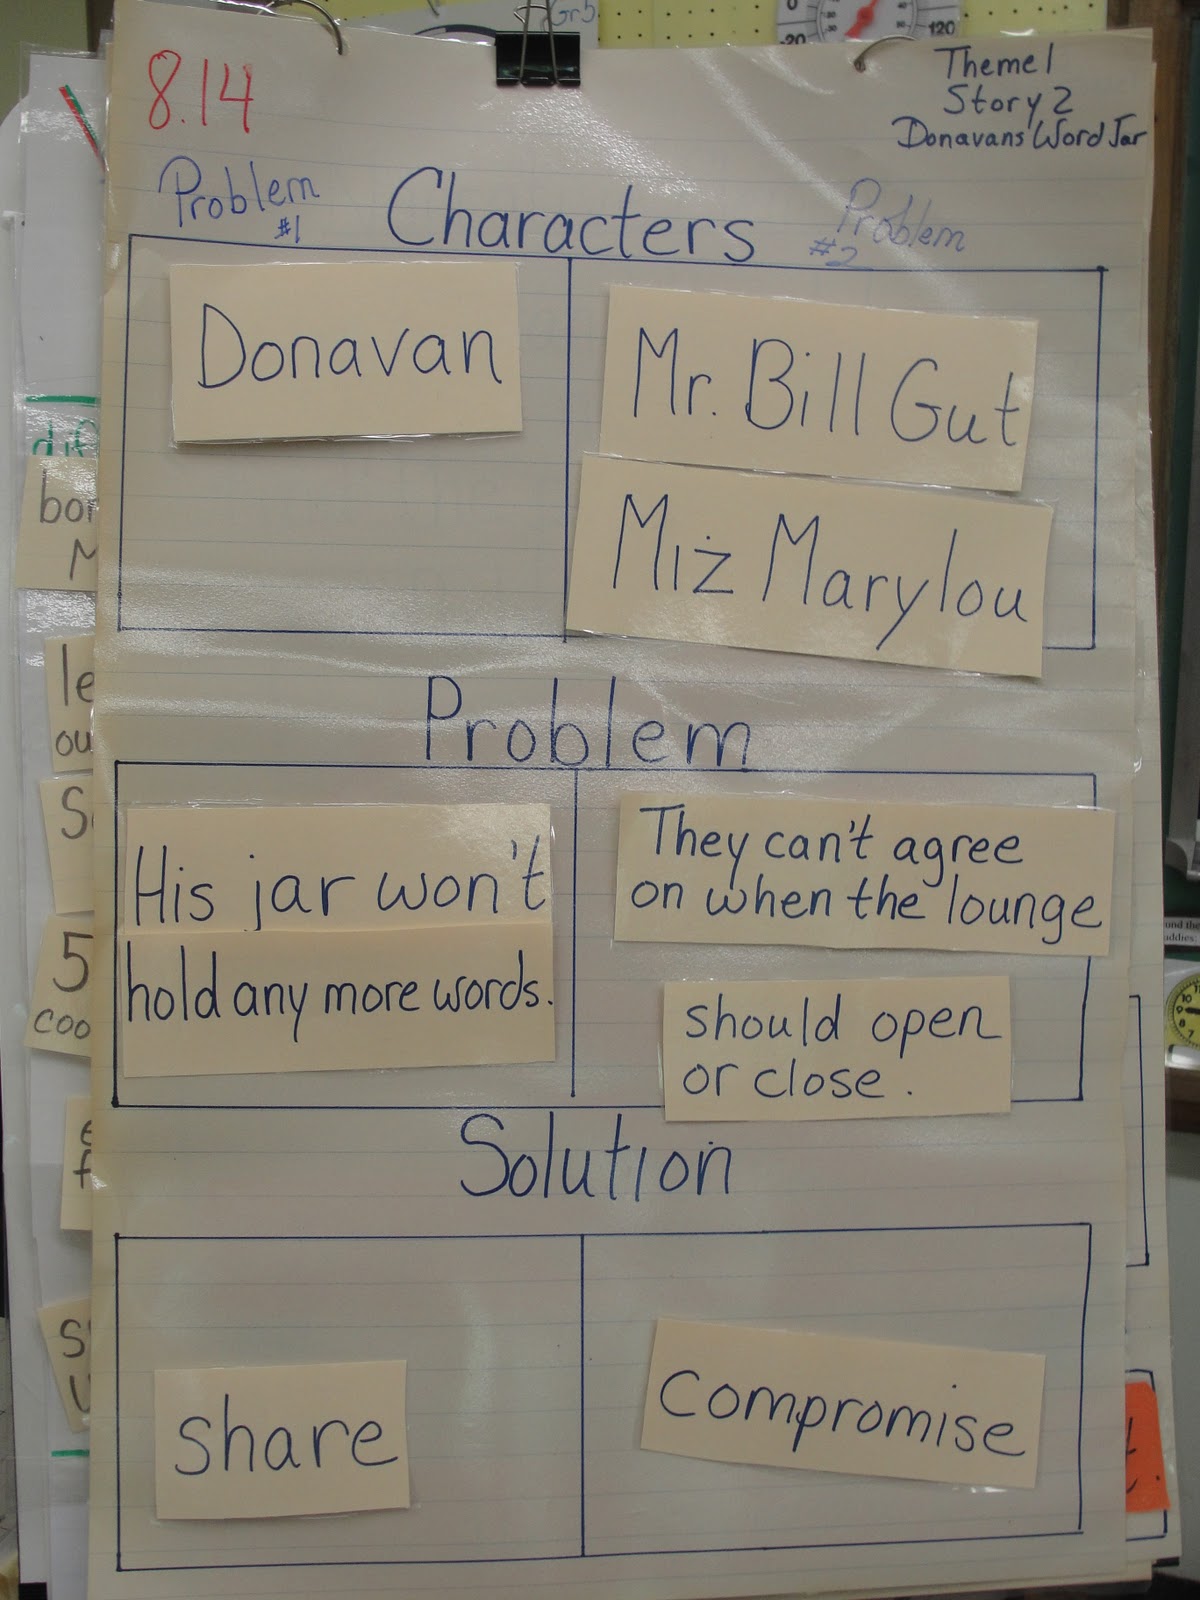 8.14
Theme 1
Story 2
Donavans Word Jar
Problem
#1
Characters
Problem
#2
Donavan
Mr. Bill Gut
Miz Marylou
Problem
His jar won't
hold any more words.
They can't agree
on when the lounge
should open
or close.
Solution
share
Compromise
120